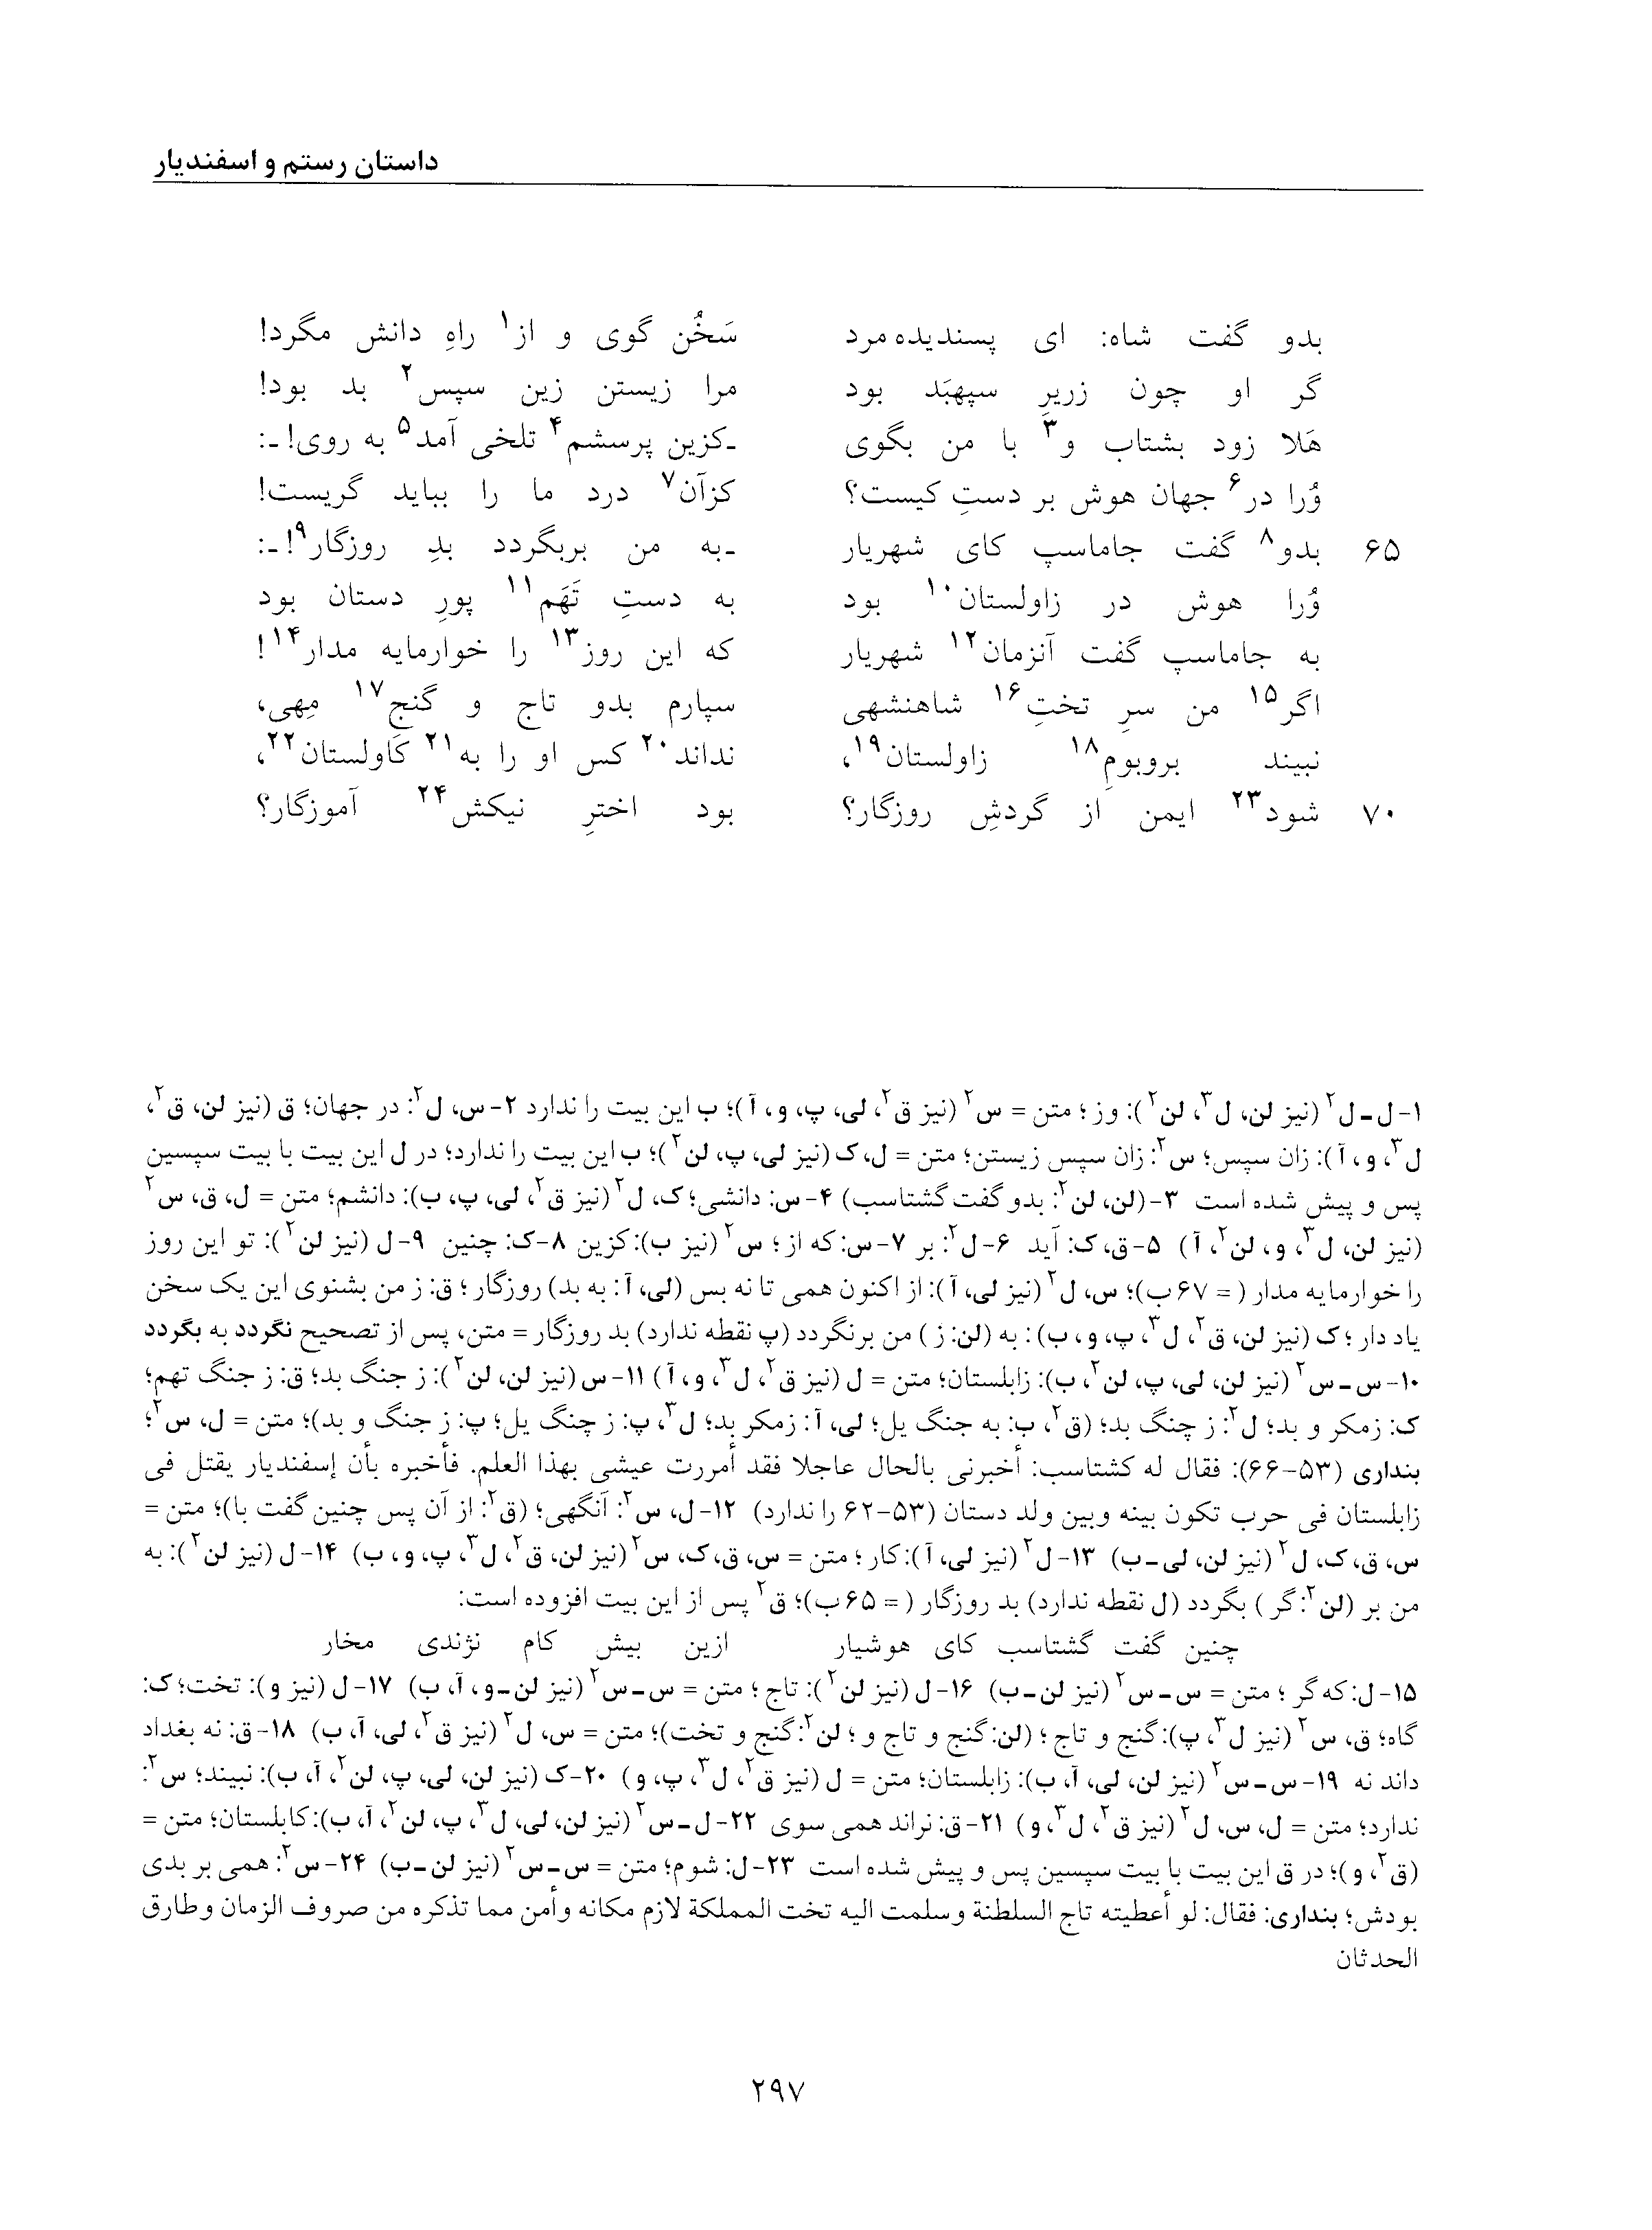 داستان رستم و اسفندیار
بدو گفت شاه: ای پسندیده مرد سَخُن گوی و از۱ راهِ دانش مگرد!
گر او چون زریرِ سپهبَد بود مرا زیستن زین سپس۲ بد بود!
هَلا زود بشتاب و۳ با من بگوی ـکزین پرسشم۴ تلخی آمد۵ به روی!ـ:
وُرا در۶ جهان هوش بر دستِ کیست؟ کزآن۷ درد ما را بباید گریست!
۶۵ بدو۸ گفت جاماسپ کای شهریار ـبه من بربگردد بدِ روزگار۹!ـ:
وُرا هوش در زاولستان۱۰ بود به دستِ تَهَم۱۱ پورِ دستان بود
به جاماسپ گفت آنزمان۱۲ شهریار که این روز۱۳ را خوارمایه مدار۱۴!
اگر۱۵ من سرِ تختِ۱۶ شاهنشهی سپارم بدو تاج و گنجِ۱۷ مِهی،
نبیند بروبومِ۱۸ زاولستان۱۹، نداند۲۰ کس او را به۲۱ کاولستان۲۲،
۷۰ شود۲۳ ایمن از گردشِ روزگار؟ بود اخترِ نیکش۲۴ آموزگار؟
۱-ل-ل۲ (نیز لن، ل۳، لن۲): وز؛ متن = س۲ (نیز ق۲، لی، پ، و، آ)؛ ب این بیت را ندارد ۲-س، ل۲: در جهان؛ ق (نیز لن، ق۲،
ل۳، و، آ): زان سپس؛ س۲: زان سپس زیستن؛ متن = ل، ک (نیز لی، پ، لن۲)؛ ب این بیت را ندارد؛ در ل این بیت با بیت سپسین
پس و پیش شده است ۳-(لن، لن۲: بدو گفت گشتاسب) ۴-س: دانشی؛ ک، ل۲ (نیز ق۲، لی، پ، ب): دانشم؛ متن = ل، ق، س۲
(نیز لن، ل۳، و، لن۲، آ) ۵-ق، ک: آید ۶-ل۲: بر ۷-س: که از؛ س۲ (نیز ب): کزین ۸-ک: چنین ۹-ل (نیز لن۲): تو این روز
را خوارمایه مدار (= ۶۷ ب)؛ س، ل۲ (نیز لی، آ): از اکنون همی تا نه بس (لی، آ: به بد) روزگار؛ ق: ز من بشنوی این یک سخن
یاد دار؛ ک (نیز لن، ق۲، ل۳، پ، و، ب): به (لن: ز) من برنگردد (پ نقطه ندارد) بد روزگار = متن، پس از تصحیح نگردد به بگردد
۱۰-س-س۲ (نیز لن، لی، پ، لن۲، ب): زابلستان؛ متن = ل (نیز ق۲، ل۳، و، آ) ۱۱-س (نیز لن، لن۲): ز جنگ بد؛ ق: ز جنگ تهم؛
ک: زمکر و بد؛ ل۲: ز چنگ بد؛ (ق۲، ب: به جنگ یل؛ لی، آ: زمکر بد؛ ل۳، پ: ز چنگ یل؛ پ: ز جنگ و بد)؛ متن = ل، س۲؛
بنداری (۵۳-۶۶): فقال له کشتاسب: أخبرنی بالحال عاجلا فقد أمررت عیشی بهذا العلم. فأخبره بأن إسفندیار یقتل فی
زابلستان فی حرب تکون بینه وبین ولد دستان (۵۳-۶۲ را ندارد) ۱۲-ل، س۲: آنگهی؛ (ق۲: از آن پس چنین گفت با)؛ متن =
س، ق، ک، ل۲ (نیز لن، لی-ب) ۱۳-ل۲ (نیز لی، آ): کار؛ متن = س، ق، ک، س۲ (نیز لن، ق۲، ل۳، پ، و، ب) ۱۴-ل (نیز لن۲): به
من بر (لن۲: گر) بگردد (ل نقطه ندارد) بد روزگار (= ۶۵ ب)؛ ق۲ پس از این بیت افزوده است:
چنین گفت گشتاسب کای هوشیار ازین بیش کام نژندی مخار
۱۵-ل: که گر؛ متن = س-س۲ (نیز لن-ب) ۱۶-ل (نیز لن۲): تاج؛ متن = س-س۲ (نیز لن-و، آ، ب) ۱۷-ل (نیز و): تخت؛ ک:
گاه؛ ق، س۲ (نیز ل۳، پ): گنج و تاج؛ (لن: گنج و تاج و؛ لن۲: گنج و تخت)؛ متن = س، ل۲ (نیز ق۲، لی، آ، ب) ۱۸-ق: نه بغداد
داند نه ۱۹-س-س۲ (نیز لن، لی، آ، ب): زابلستان؛ متن = ل (نیز ق۲، ل۳، پ، و) ۲۰-ک (نیز لن، لی، پ، لن۲، آ، ب): نبیند؛ س۲:
ندارد؛ متن = ل، س، ل۲ (نیز ق۲، ل۳، و) ۲۱-ق: نراند همی سوی ۲۲-ل-س۲ (نیز لن، لی، ل۳، پ، لن۲، آ، ب): کابلستان؛ متن =
(ق۲، و)؛ در ق این بیت با بیت سپسین پس و پیش شده است ۲۳-ل: شوم؛ متن = س-س۲ (نیز لن-ب) ۲۴-س۲: همی بر بدی
بودش؛ بنداری: فقال: لو أعطیته تاج السلطنة وسلمت الیه تخت المملکة لازم مکانه وأمن مما تذکره من صروف الزمان وطارق
الحدثان
۲۹۷